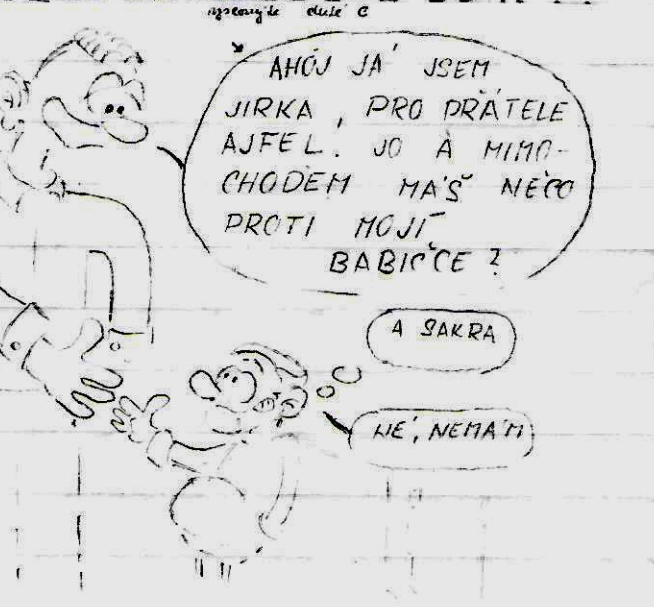 duté C
AHOJ JÁ JSEM
JIRKA, PRO PŘÁTELE
AJFEL. JO A MIMO-
CHODEM MÁŠ NĚCO
PROTI MOJÍ
BABIČCE?
A SAKRA
NE, NEMÁM